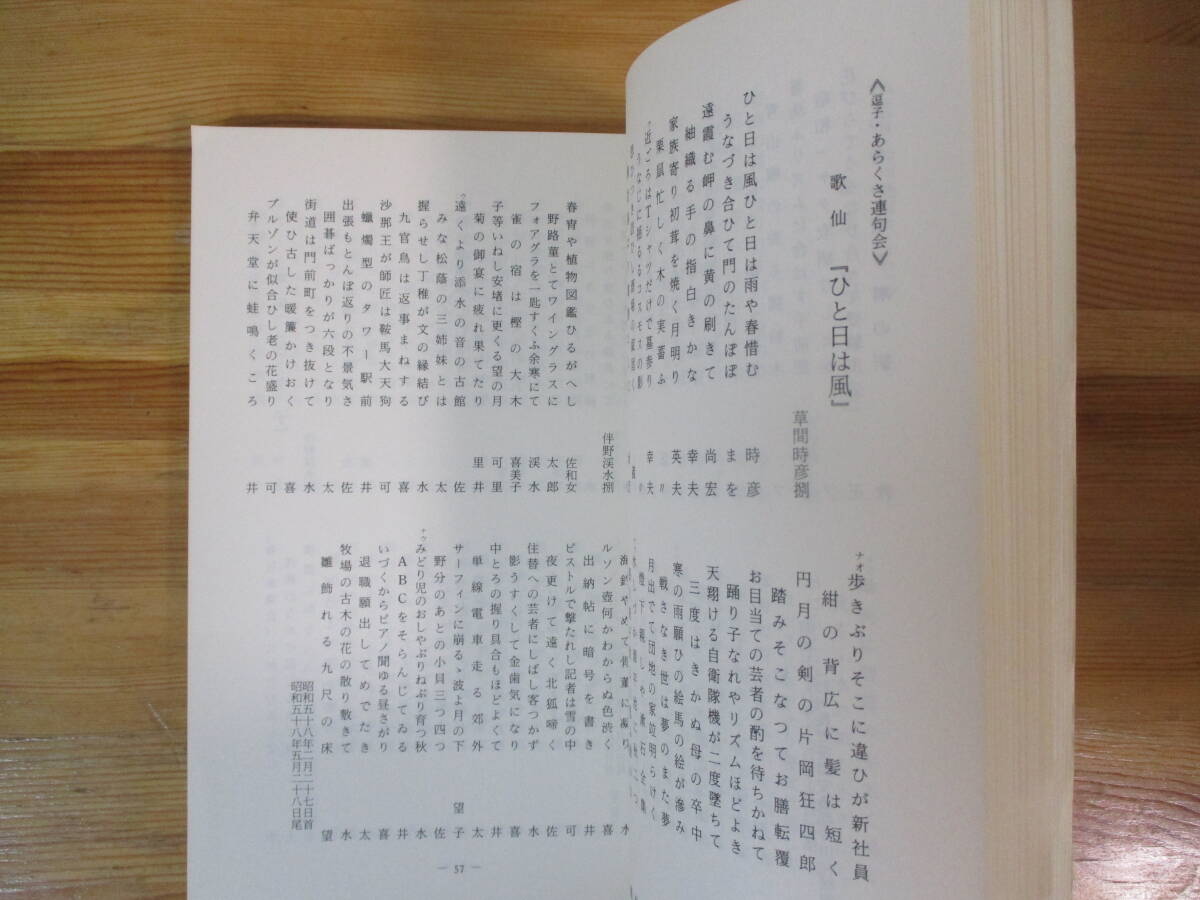 《逗子・あらくさ連句会》
歌仙 『ひと日は風』
草間時彦捌
ひと日は風ひと日は雨や春惜む 時彦
うなづき合ひて門のたんぽぽ まを
遠霞む岬の鼻に黄の刷きて 尚宏
紬織る手の指白きかな 幸夫
家族寄り初茸を焼く月明り 英夫
栗鼠忙しく木の実蓄ふ 〃
近ごろはTシャツだけで墓参り 幸夫
ナオ歩きぶりそこに違ひが新社員
紺の背広に髪は短く
円月の剣の片岡狂四郎
踏みそこなつてお膳転覆
お目当ての芸者の酌を待ちかねて
踊り子なれやリズムほどよき
天翔ける自衛隊機が二度墜ちて
三度はきかぬ母の卒中
寒の雨願ひの絵馬の絵が滲み
戦さなき世は夢のまた夢
月出でて団地の家竝明らけく
伴野渓水捌
春宵や植物図鑑ひるがへし 佐和女
野路菫とてワイングラスに 太郎
フォアグラを一匙すくふ余寒にて 渓水
雀の宿は樫の大木 喜美子
子等いねし安堵に更くる望の月 可里
菊の御宴に疲れ果てたり 里井
ウ遠くより添水の音の古館 佐
みな松蔭の三姉妹とは 太
握らせし丁稚が文の縁結び 水
九官鳥は返事まねする 喜
沙那王が師匠は鞍馬大天狗 可
蠟燭型のタワー駅前 井
出張もとんぼ返りの不景気さ 佐
囲碁ばっかりが六段となり 太
街道は門前町をつき抜けて 水
使ひ古した暖簾かけおく 喜
ブルゾンが似合ひし老の花盛り 可
弁天堂に蛙鳴くころ 井
水
ルソン壺何かわからぬ色渋く 喜
出納帖に暗号を書き 井
ピストルで撃たれし記者は雪の中 可
夜更けて遠く北狐啼く 佐
住替への芸者にしばし客つかず 水
影うすくして金歯気になり 喜
中とろの握り具合もほどよくて 井
単線電車走る郊外 太
サーフィンに崩るゝ波よ月の下 望子
野分のあとの小貝三つ四つ 佐
ナウみどり児のおしゃぶりねぶり育つ秋 水
ABCをそらんじてゐる 井
いづくからピアノ聞ゆる昼さがり 喜
退職願出してめでたき 太
牧場の古木の花の散り敷きて 水
雛飾れる九尺の床 望
昭和五十八年二月二十七日首
昭和五十八年五月二十八日尾
― 57 ―